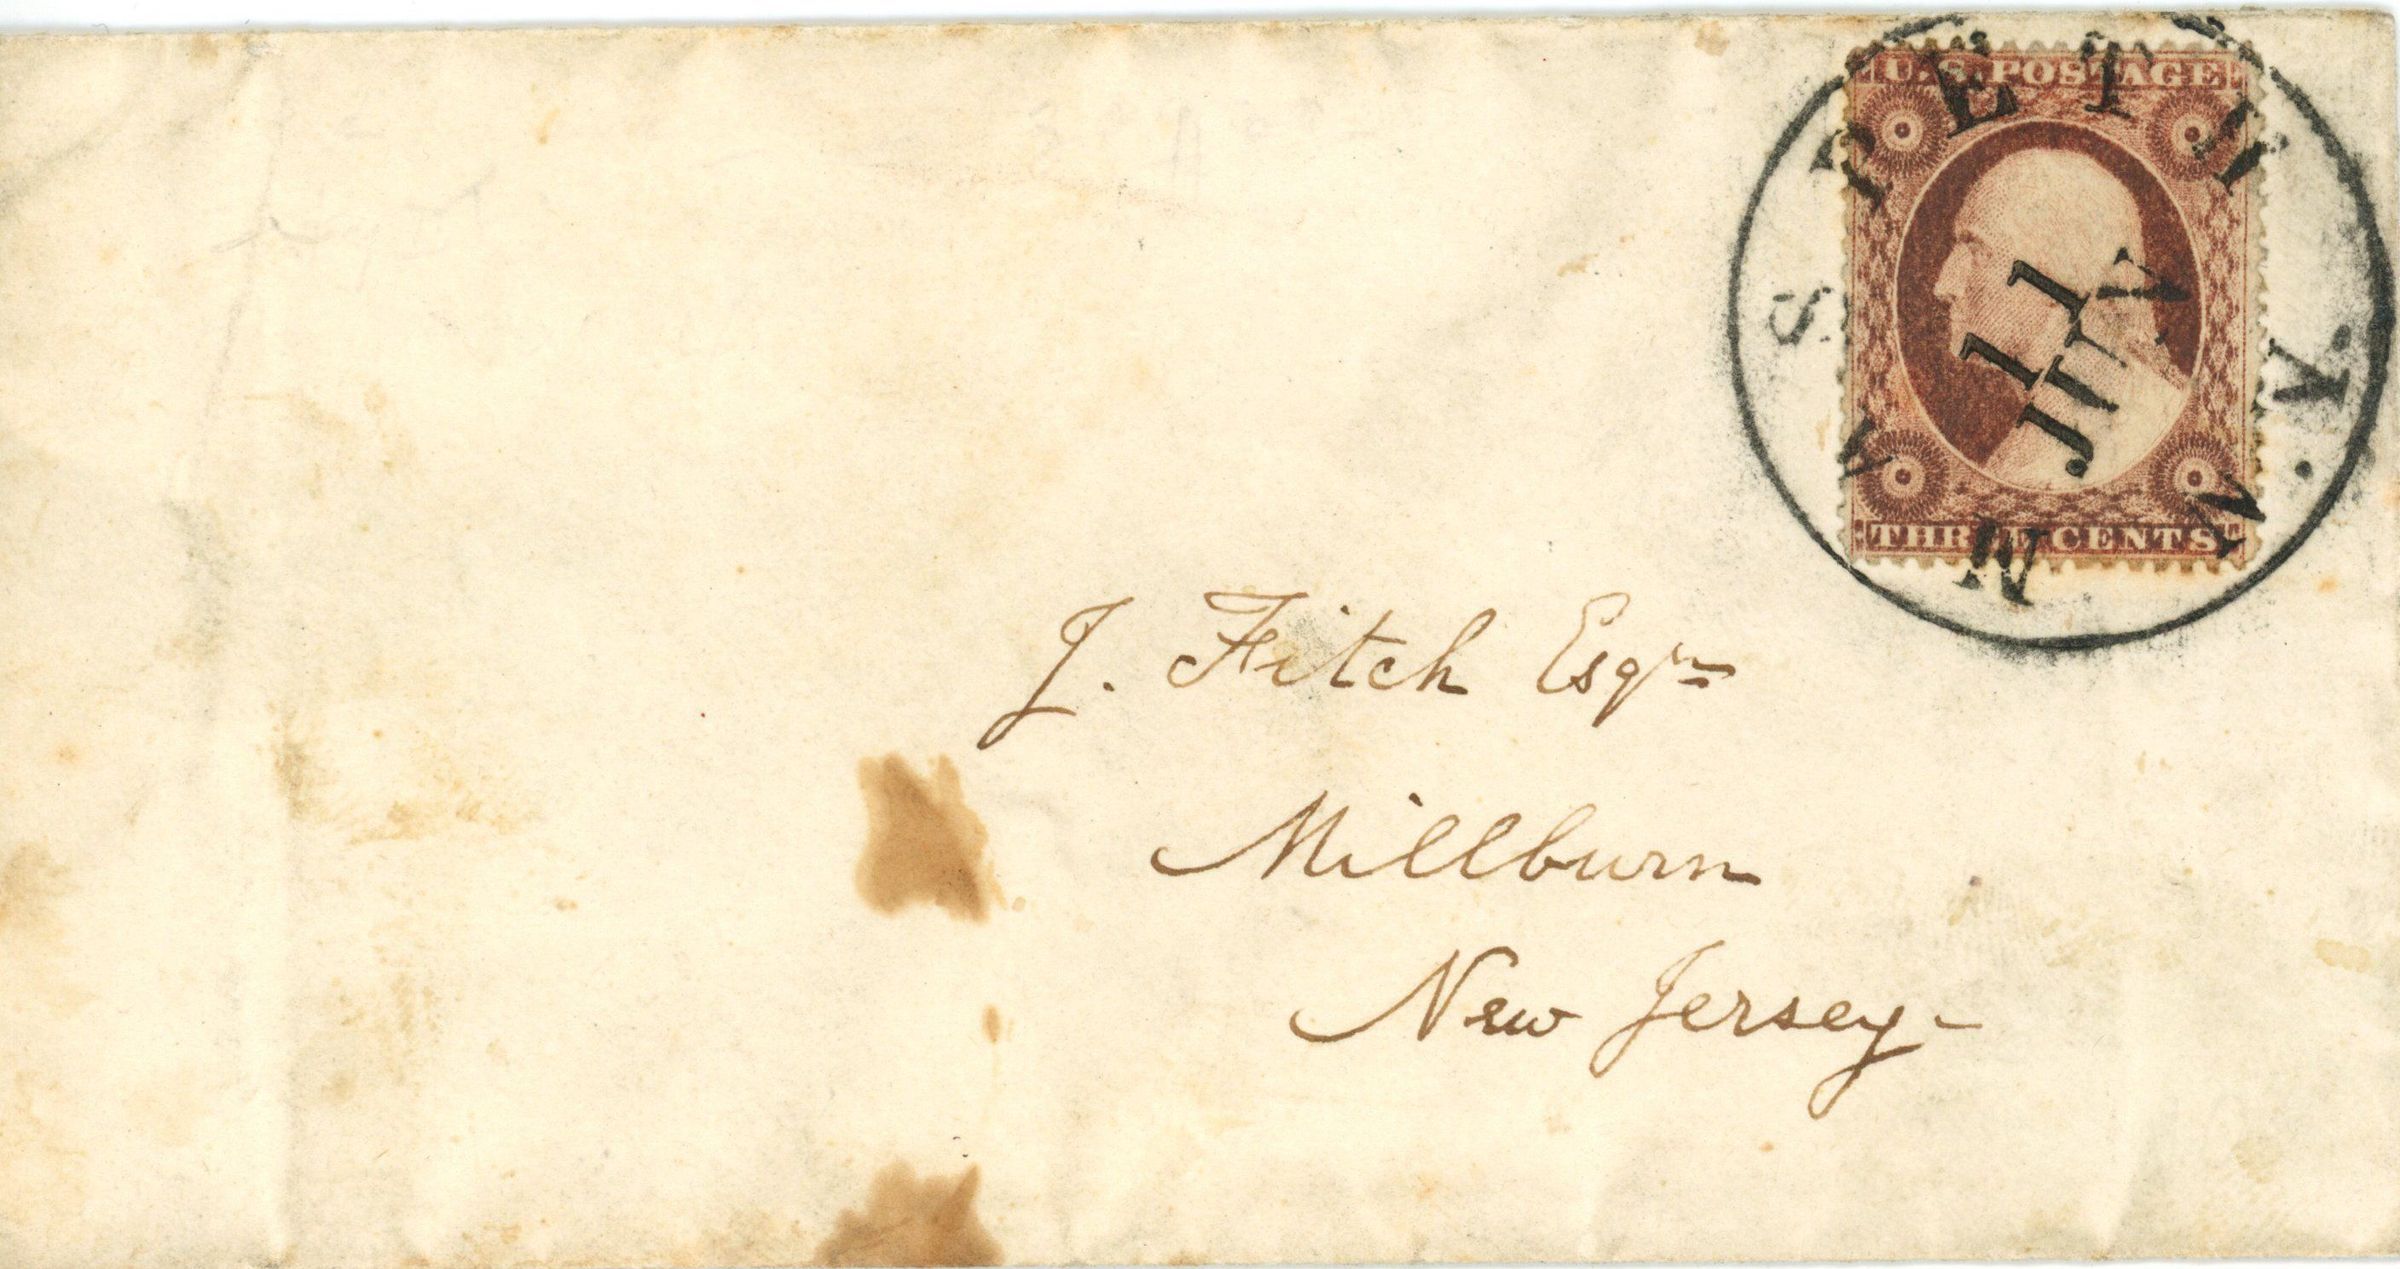 U.S. POSTAGE
MASPETH N.Y.
11
JUN
THREE CENTS
J. Fitch Esqr
Millburn
New Jersey-